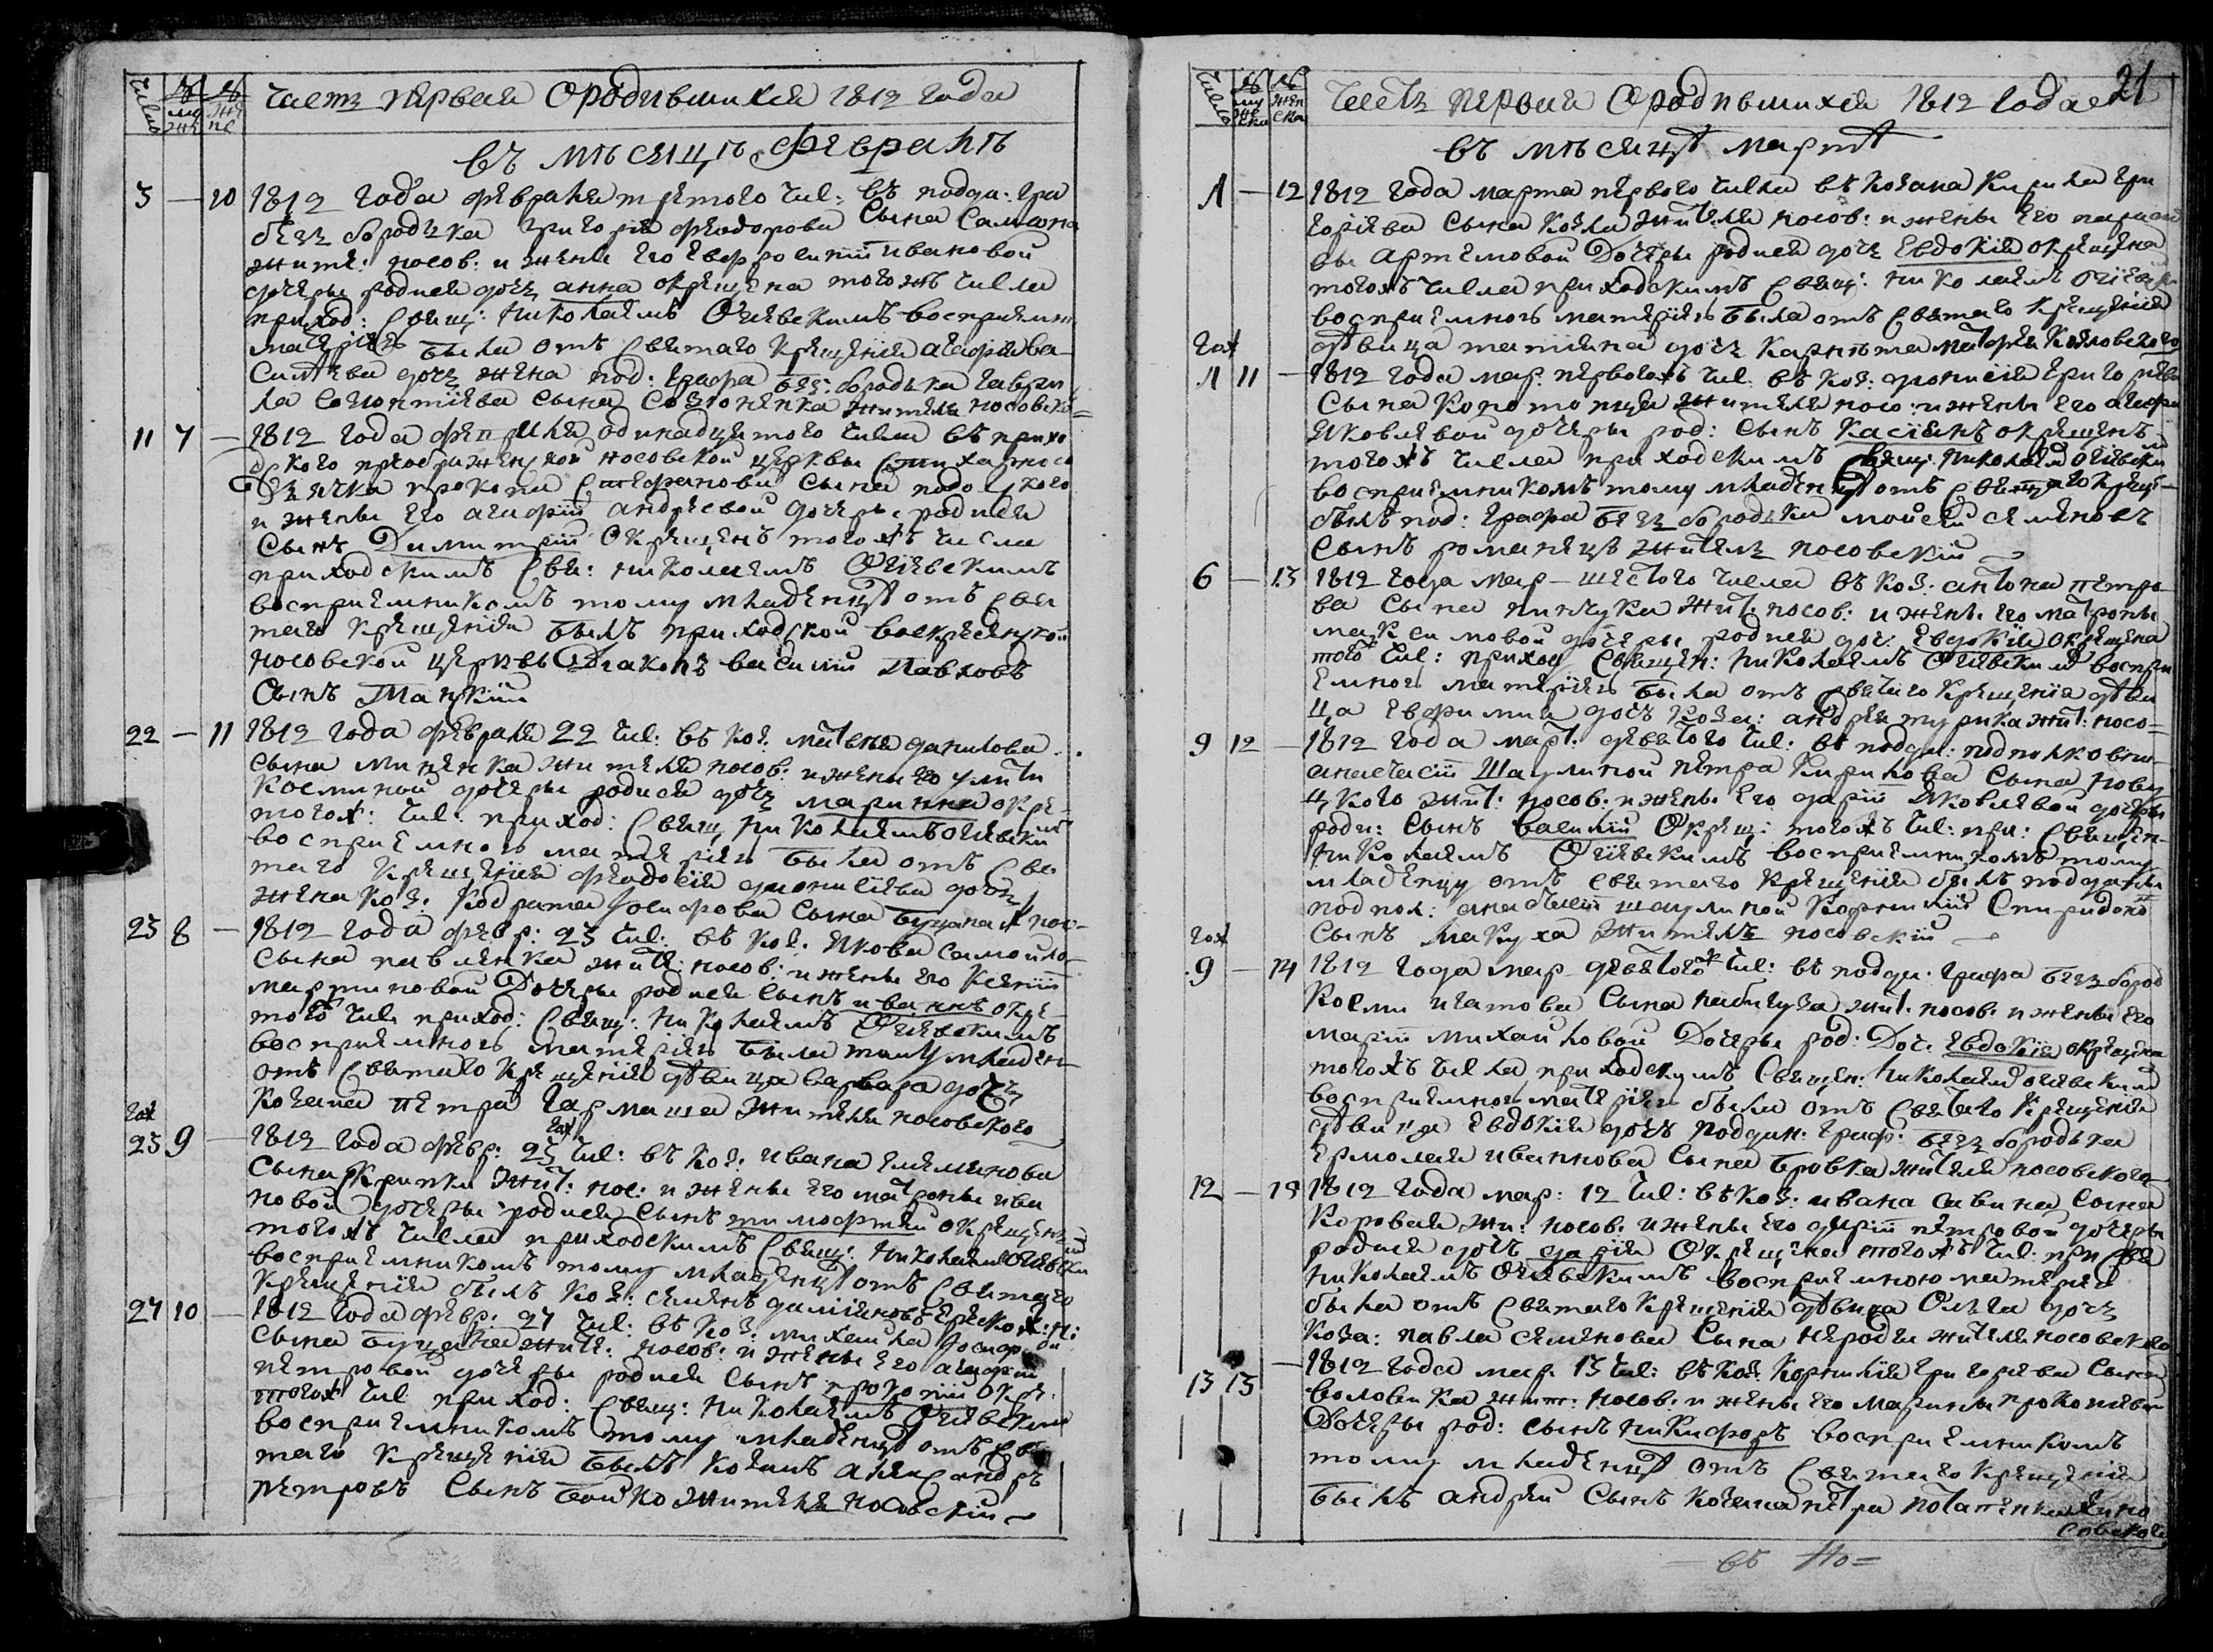 число му же
Часть первая О родившихся 1812 года
въ мѣсяцѣ Февралѣ
3 — 10 1812 года февраля третого чис: въ подда: гра
безъ бородька григорія феодорова Сына
жите: носов: и жены его евфросиніи ивановой
дочеры родися дочь анна окрещена тогожъ числа
приход: свящ: николаемъ Огіевскимъ восприемн
матерію была отъ святаго крещенія агафія ва
дочь жена под: графа без: бородька гаври
ла Сына жителя носовск
11 7 — 1812 года февраля одинадцятого числа въ прихо
дской преображенской носовской церквы
Дячка прокопа Стефанова Сына
и жены его агафіи андреевой дочеры родися
Сынъ Димитрій Окрещенъ тогожъ числа
приходскимъ свя: николаемъ Огіевскимъ
восприемникомъ тому младенцѣ отъ свя
таго крещенія былъ приходской воскресенской
носовской церквы Діаконъ василій Павловъ
Сынъ
22 — 11 1812 года февраля 22 чис: въ коз: матвея данилова
сына миненка жителя носов: и жены его улити
косминой дочеры родися дочь маринна окре
тогож: чис: приход: свящ николаемъ огіевским
восприемною матерію была отъ свя
таго крещенія феодосія діонисіева дочь
жена коз: кодрата іосифова сына буцана нос
23 8 — 1812 года февр: 23 чис: въ коз: якова самойло
сына павленка жите: носов: и жены его ксеніи
мартиновой Дочеры родися сынъ иваннъ окре
того чис приход: свящ: николаемъ Огіевскимъ
восприемною матерію была тому младен
отъ святаго крещенія дѣвица варвара дочь
козака петра гармаша жителя носовского
тож
23 9 — 1812 года февр: 23 чис: въ коз: ивана
сына жит: нос: и жены его матроны ива
новой дочеры родися сынъ тимофтей окрещенъ
тогожъ числа приходскимъ свящ: николаем Огіевски
восприемникомъ тому младенцѣ отъ святаго
крещенія былъ коз: семенъ даміяновъ
27 10 — 1812 года февр: 27 чис: въ коз: михаила іосифова
сына буцана жите: носов: и жены его агафіи
петровой дочеры родися сынъ прокопій окре
тогож чис приход: свящ: николаемъ Огіевским
восприемникомъ тому младенцѣ отъ свя
таго крещенія былъ козакъ александръ
петровъ Сынъ бойко жителъ носовскій
21
число му жеска жен ска
Часть первая О родившихся 1812 года
въ мѣсяцѣ мартѣ
1 — 12 1812 года марта первого числа въ козака кирила гри
горіева сына козла жителя носов: и жены его параске
вы артемовой Дочеры родися дочь евдокія окрещена
тогожъ числа приходскимъ свящ: николаемъ огіевск
восприемною матерію была отъ святаго крещенія
дѣвица татіяна дочь корнета матфея козловского
тож
1 11 — 1812 года мар: первогожъ чис: въ коз: діонисія григоріева
сына коропца жителя носо: и жены его агафи
яковлевой дочеры род: сынъ касіянъ окрещенъ
тогожъ числа приходскимъ свящ: николаем огіевски
восприемникомъ тому младенцѣ отъ святаго крещ
былъ под: графа безъ бородька мойсей семеновъ
сынъ романецъ жителъ носовскій
6 — 13 1812 года мар шестого числа въ коз: антона петро
ва сына пинчука жит: носов: и жены его матроны
максимовой дочеры родися доч: евдокія окрещена
того чис: приход священ: николаемъ Огіевским воспри
емною матерію была отъ святаго крещенія дѣви
ца евфимия дочь коза: андрея турика жит: носо
9 12 — 1812 года март: девятого чис: въ подда: подполковни
анастасіи Шаулиной петра кирилова сына нову
цкого жит: носов: и жены его даріи яковлевой дочеры
роди: сынъ василій Окрещ: тогожъ чис: при: священ
николаемъ Огіевскимъ восприемникомъ тому
младенцу отъ святаго крещенія былъ подданы
подпол: анастасіи шаулиной корнилій Спиридоно
сынъ макуха жителъ носовскій
тож
9 — 14 1812 года мар девятого чис: въ подда: графа безъ бород
косми игатова сына жит: носов: и жены его
маріи михайловой Дочеры род: Доч: евдокія окрещена
тогожъ числа приходскимъ Священ: николаем огіевским
восприемною матерію была отъ святаго крещенія
дѣвица евдокія дочь поддан: граф: безъ бородька
ермолая иваннова Сына бровка жителя носовского
12 — 15 1812 года мар: 12 чис: въ коз: ивана савина сына
коровая жи: носов: и жены его даріи петровой дочеры
родися дочь дарія Окрещена тогожъ чис: при свя
николаемъ Огіевскимъ восприемною матерію
была отъ святаго крещенія дѣвица Олена дочь
коза: павла семенова Сына жителя носовского
13 13 — 1812 года мар: 13 чис: въ коз: корнилія григоріева сына
воловика жит: носов: и жены его марины прокопіевы
Дочеры род: сынъ никифоръ восприемникомъ
тому младенцѣ отъ святаго крещенія
былъ андрей Сынъ козака петра но
совского
въ но=